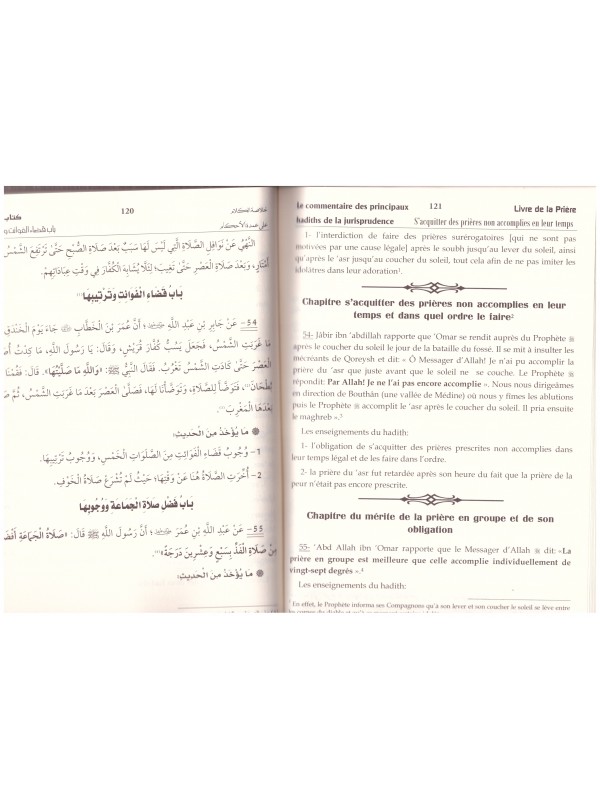 خلاصة الكلام
120
كتاب
على عمدة الأحكام
باب قضاء الفوائت و
النَّهْيُ عَنْ نَوَافِلِ الصَّلَاةِ الَّتِي لَيْسَ لَهَا سَبَبٌ بَعْدَ صَلَاةِ الصُّبْحِ حَتَّى تَرْتَفِعَ الشَّمْسُ
وَبَعْدَ صَلَاةِ الْعَصْرِ حَتَّى تَغِيبَ؛ لِئَلَّا يُشَابِهَ الْكُفَّارَ فِي وَقْتِ عِبَادَاتِهِمْ.
بَابُ قَضَاءِ الْفَوَائِتِ وَتَرْتِيبِهَا
54- عَنْ جَابِرِ بْنِ عَبْدِ اللَّهِ؛ أَنَّ عُمَرَ بْنَ الْخَطَّابِ جَاءَ يَوْمَ الْخَنْدَقِ
مَا غَرَبَتِ الشَّمْسُ، فَجَعَلَ يَسُبُّ كُفَّارَ قُرَيْشٍ، وَقَالَ: يَا رَسُولَ اللَّهِ، مَا كِدْتُ
الْعَصْرَ حَتَّى كَادَتِ الشَّمْسُ تَغْرُبُ. فَقَالَ النَّبِيُّ ﷺ: «وَاللَّهِ مَا صَلَّيْتُهَا». قَالَ: فَقُمْنَا
بُطْحَانَ، فَتَوَضَّأَ لِلصَّلَاةِ، وَتَوَضَّأْنَا لَهَا، فَصَلَّى الْعَصْرَ بَعْدَ مَا غَرَبَتِ الشَّمْسُ، ثُمَّ
بَعْدَهَا الْمَغْرِبَ
مَا يُؤْخَذُ مِنَ الْحَدِيثِ:
1- وُجُوبُ قَضَاءِ الْفَوَائِتِ مِنَ الصَّلَوَاتِ الْخَمْسِ، وَوُجُوبُ تَرْتِيبِهَا.
2- أُخِّرَتِ الصَّلَاةُ هُنَا عَنْ وَقْتِهَا؛ حَيْثُ لَمْ تُشْرَعْ صَلَاةُ الْخَوْفِ.
بَابُ فَضْلِ صَلَاةِ الْجَمَاعَةِ وَوُجُوبِهَا
55- عَنْ عَبْدِ اللَّهِ بْنِ عُمَرَ؛ أَنَّ رَسُولَ اللَّهِ ﷺ قَالَ: «صَلَاةُ الْجَمَاعَةِ
مِنْ صَلَاةِ الْفَذِّ بِسَبْعٍ وَعِشْرِينَ دَرَجَةً»
مَا يُؤْخَذُ مِنَ الْحَدِيثِ:
le commentaire des principaux 121 Livre de la Prière
hadiths de la jurisprudence S'acquitter des prières non accomplies en leur temps
1- l'interdiction de faire des prières surérogatoires [qui ne sont
pas motivées par une cause légale] après le soubh jusqu'au lever du soleil, ainsi
qu'après le 'asr jusqu'au coucher du soleil, tout cela afin de ne pas imiter les
idolâtres dans leur adoration¹.
Chapitre s'acquitter des prières non accomplies en leur
temps et dans quel ordre le faire²
54- Jâbir ibn 'abdillah rapporte que 'Omar se rendit auprès du Prophète ﷺ
après le coucher du soleil le jour de la bataille du fossé. Il se mit à insulter les
mécréants de Qoreysh et dit : « Ô Messager d'Allah! Je n'ai pu accomplir la
prière du 'asr que juste avant que le soleil ne se couche. Le Prophète ﷺ
répondit: Par Allah! Je ne l'ai pas encore accomplie ». Nous nous dirigeâmes
en direction de Bouthân (une vallée de Médine) où nous y fimes les ablutions
puis le Prophète ﷺ accomplit le 'asr après le coucher du soleil. Il pria ensuite
le maghreb ».³
Les enseignements du hadith:
1- l'obligation de s'acquitter des prières prescrites non accomplies dans
leur temps légal et de les faire dans l'ordre.
2- la prière du 'asr fut retardée après son heure du fait que la prière de la
peur n'était pas encore prescrite.
Chapitre du mérite de la prière en groupe et de son
obligation
55- 'Abd Allah ibn 'Omar rapporte que le Messager d'Allah ﷺ dit: «La
prière en groupe est meilleure que celle accomplie individuellement de
vingt-sept degrés ».⁴
Les enseignements du hadith:
¹ En effet, le Prophète informa ses Compagnons qu'à son lever et son coucher le soleil se lève entre